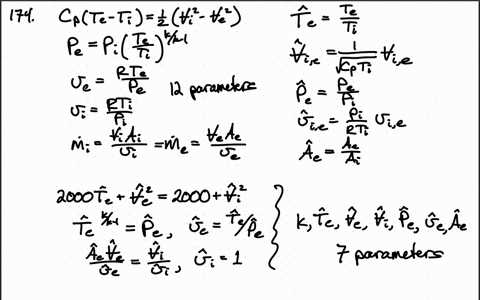 174. Cp(Te-Ti) = ½(Vi²-Ve²)
Pe = Pi(Te/Ti)^k/k-1
ve = RTe/Pe
12 parameters
vi = RTi/Pi
ṁi = ViAi/vi = ṁe = VeAe/ve
T̂e = Te/Ti
V̂i,e = 1/√CpTi Vi,e
P̂e = Pe/Pi
v̂i,e = Pi/RTi vi,e
Âe = Ae/Ai
2000T̂e + V̂e² = 2000 + V̂i²
T̂e^k/k-1 = P̂e, v̂e = T̂e/P̂e
ÂeV̂e/v̂e = V̂i/v̂i, v̂i = 1
k, T̂e, V̂e, V̂i, P̂e, v̂e, Âe
7 parameters